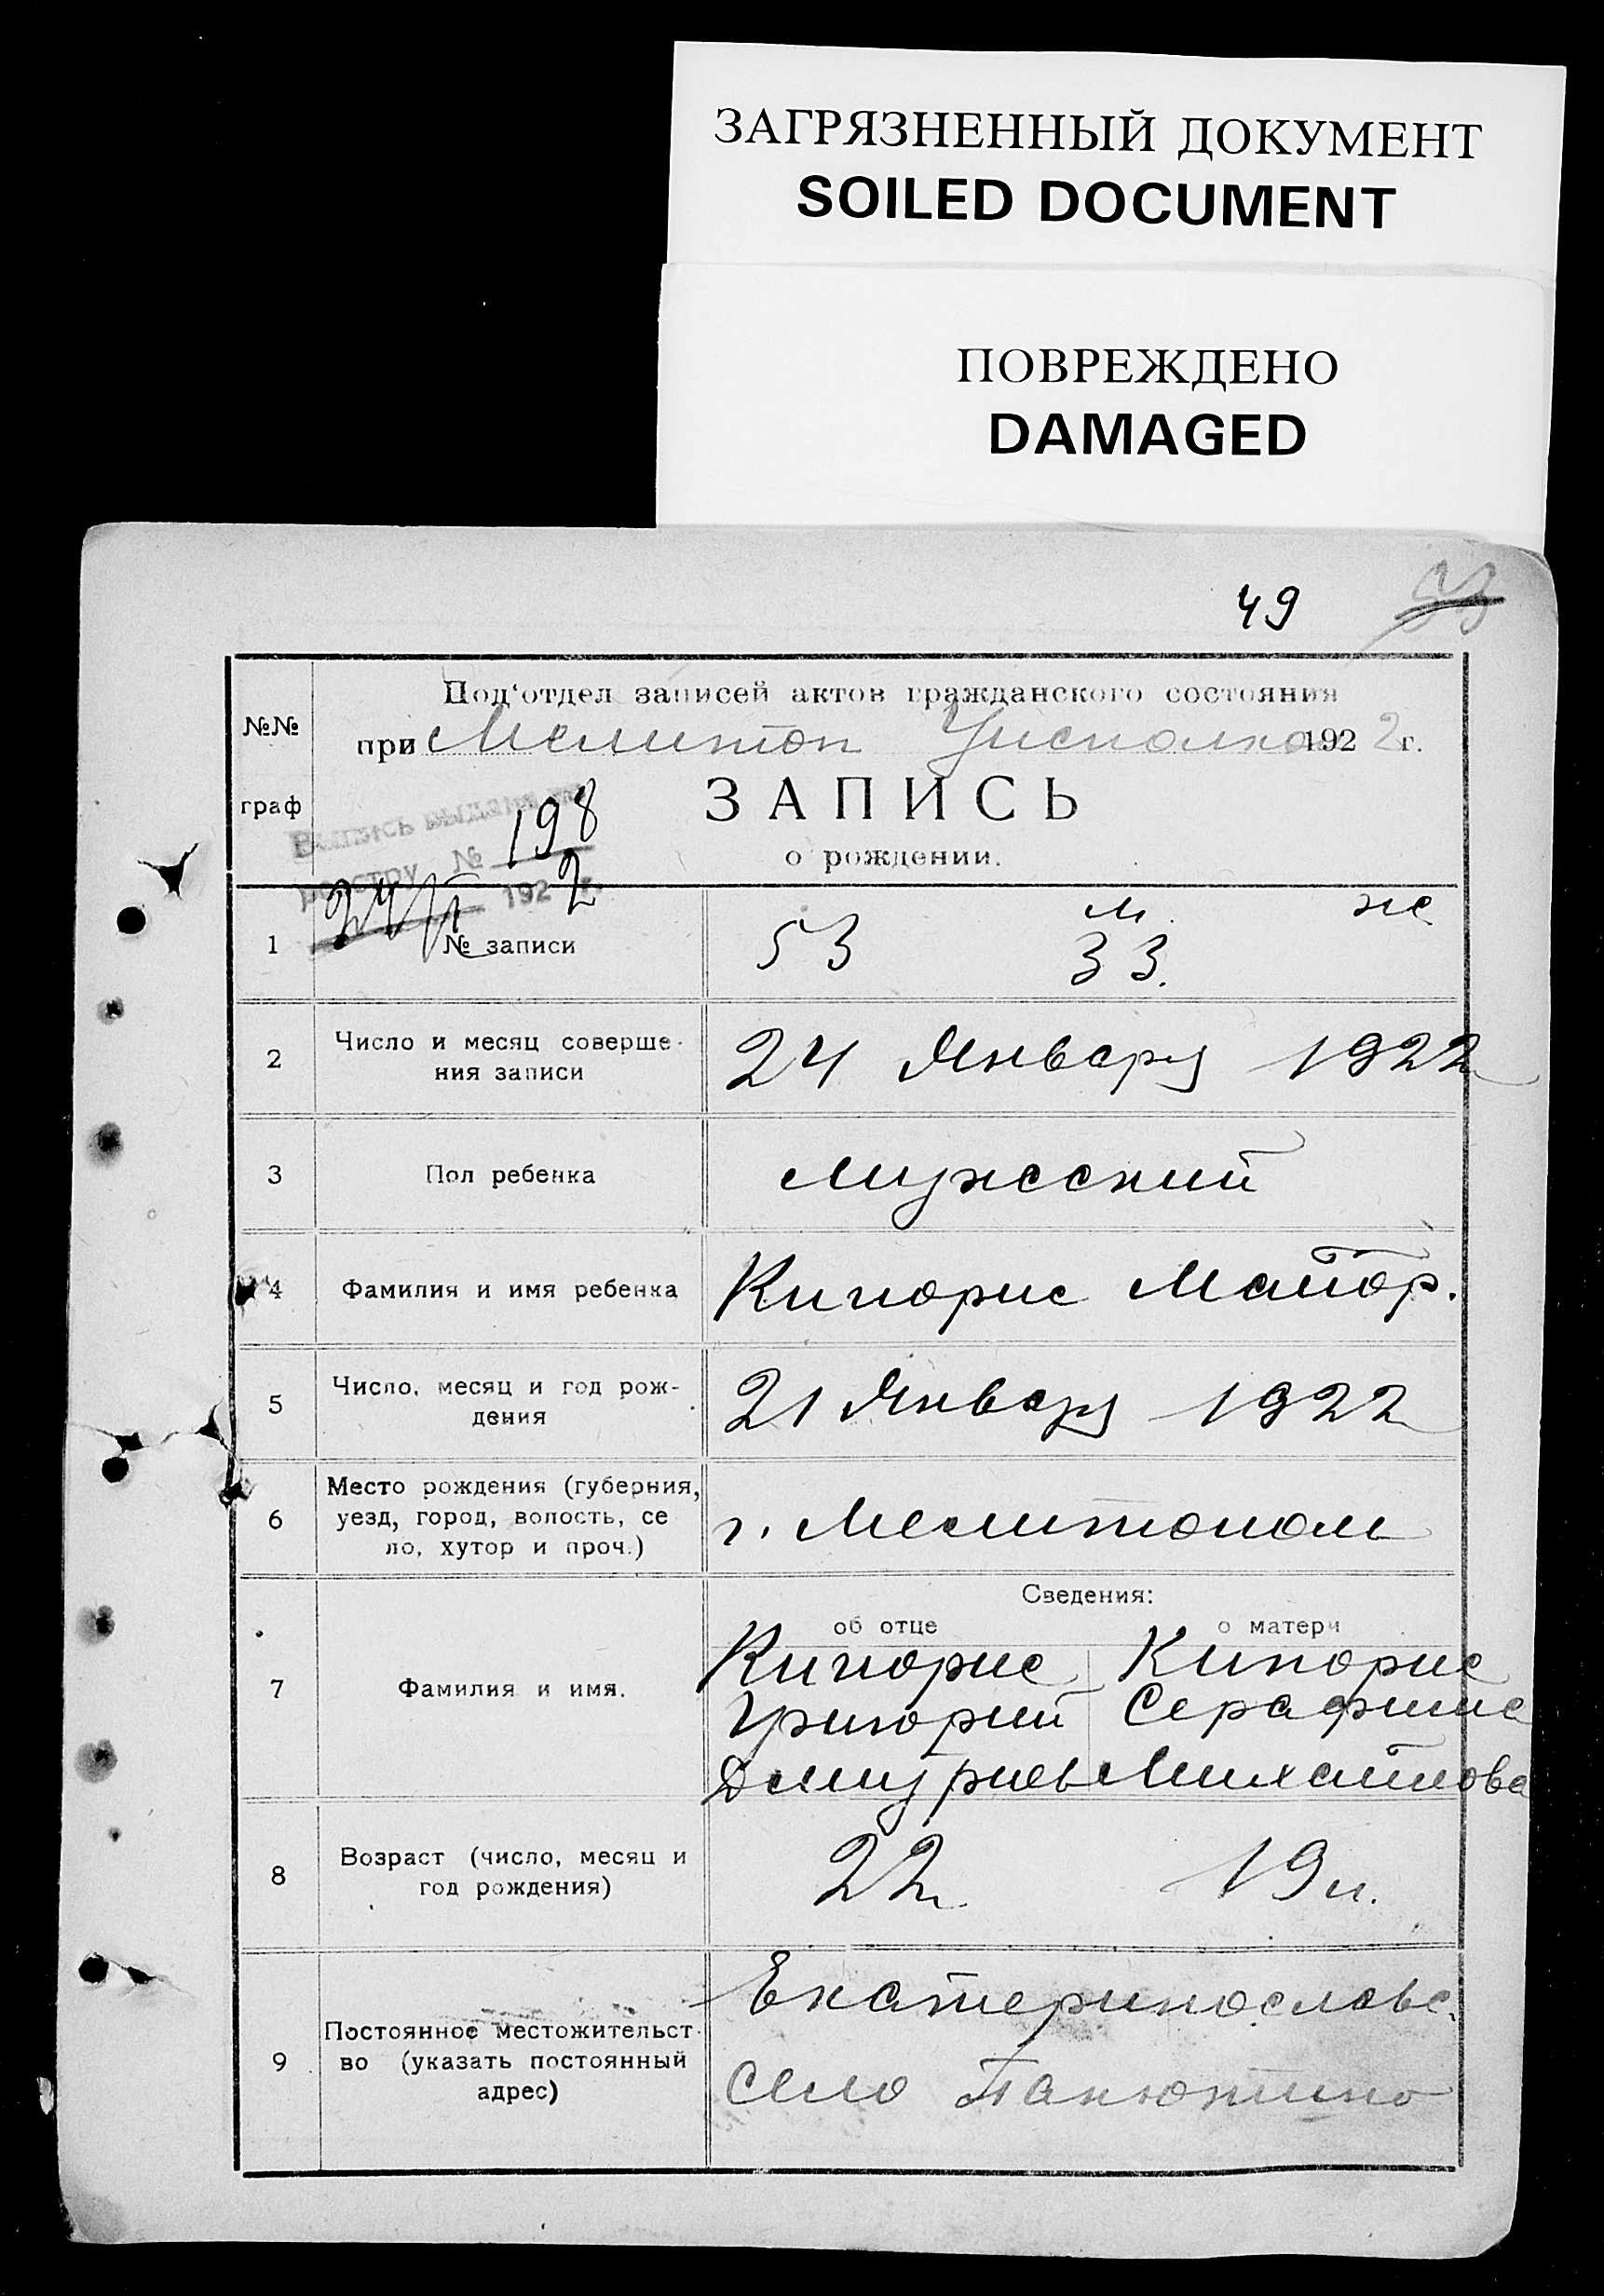 ЗАГРЯЗНЕННЫЙ ДОКУМЕНТ
SOILED DOCUMENT
ПОВРЕЖДЕНО
DAMAGED
49
№№
граф
Под'отдел записей актов гражданского состояния
при Мелитоп Уисполко 1922 г.
ЗАПИСЬ
о рождении.
Выпись выдана по
реестру № 198
1922
м. ж
1 № записи 53 33.
2 Число и месяц соверше-
ния записи
24 Января 1922
3 Пол ребенка мужеский
4 Фамилия и имя ребенка Кипорис Майор.
5 Число, месяц и год рож-
дения
21 Января 1922
6 Место рождения (губерния,
уезд, город, волость, се
ло, хутор и проч.)
г. Мелитополь
Сведения:
об отце о матери
7 Фамилия и имя.
Кипорис Кипорис
Григорий Серафима
Дмитриев Михайлова
8 Возраст (число, месяц и
год рождения)
22 19 л.
9 Постоянное местожительст-
во (указать постоянный
адрес)
Екатеринославс.
село Панютино